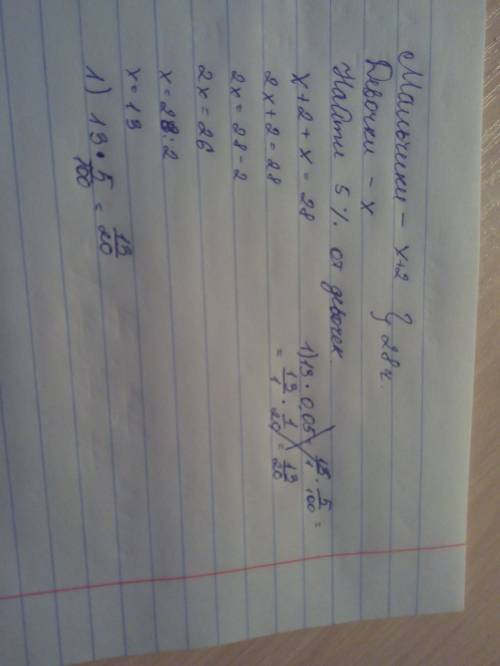 Мальчики - x+2 } 28 ч.
Девочки - x
Найти 5% от девочек
x+2+x = 28
2x+2=28
2x = 28-2
2x = 26
x = 28:2
x = 13
1) 13 · 5/100 = 13/20
1) 13 · 0,05 = 13/1 · 5/100 =
= 13/1 · 1/20 = 13/20